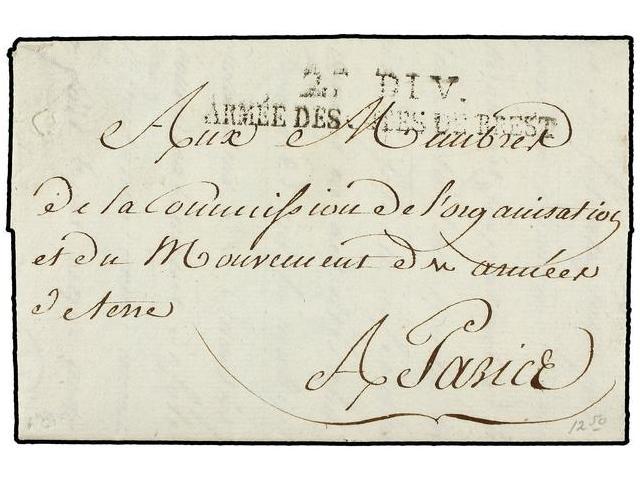 2E DIV.
ARMÉE DES CÔTES DE BREST
Aux Membres
de la Commission de l'organisation
et du Mouvement des armées
de terre
A Paris
12 50